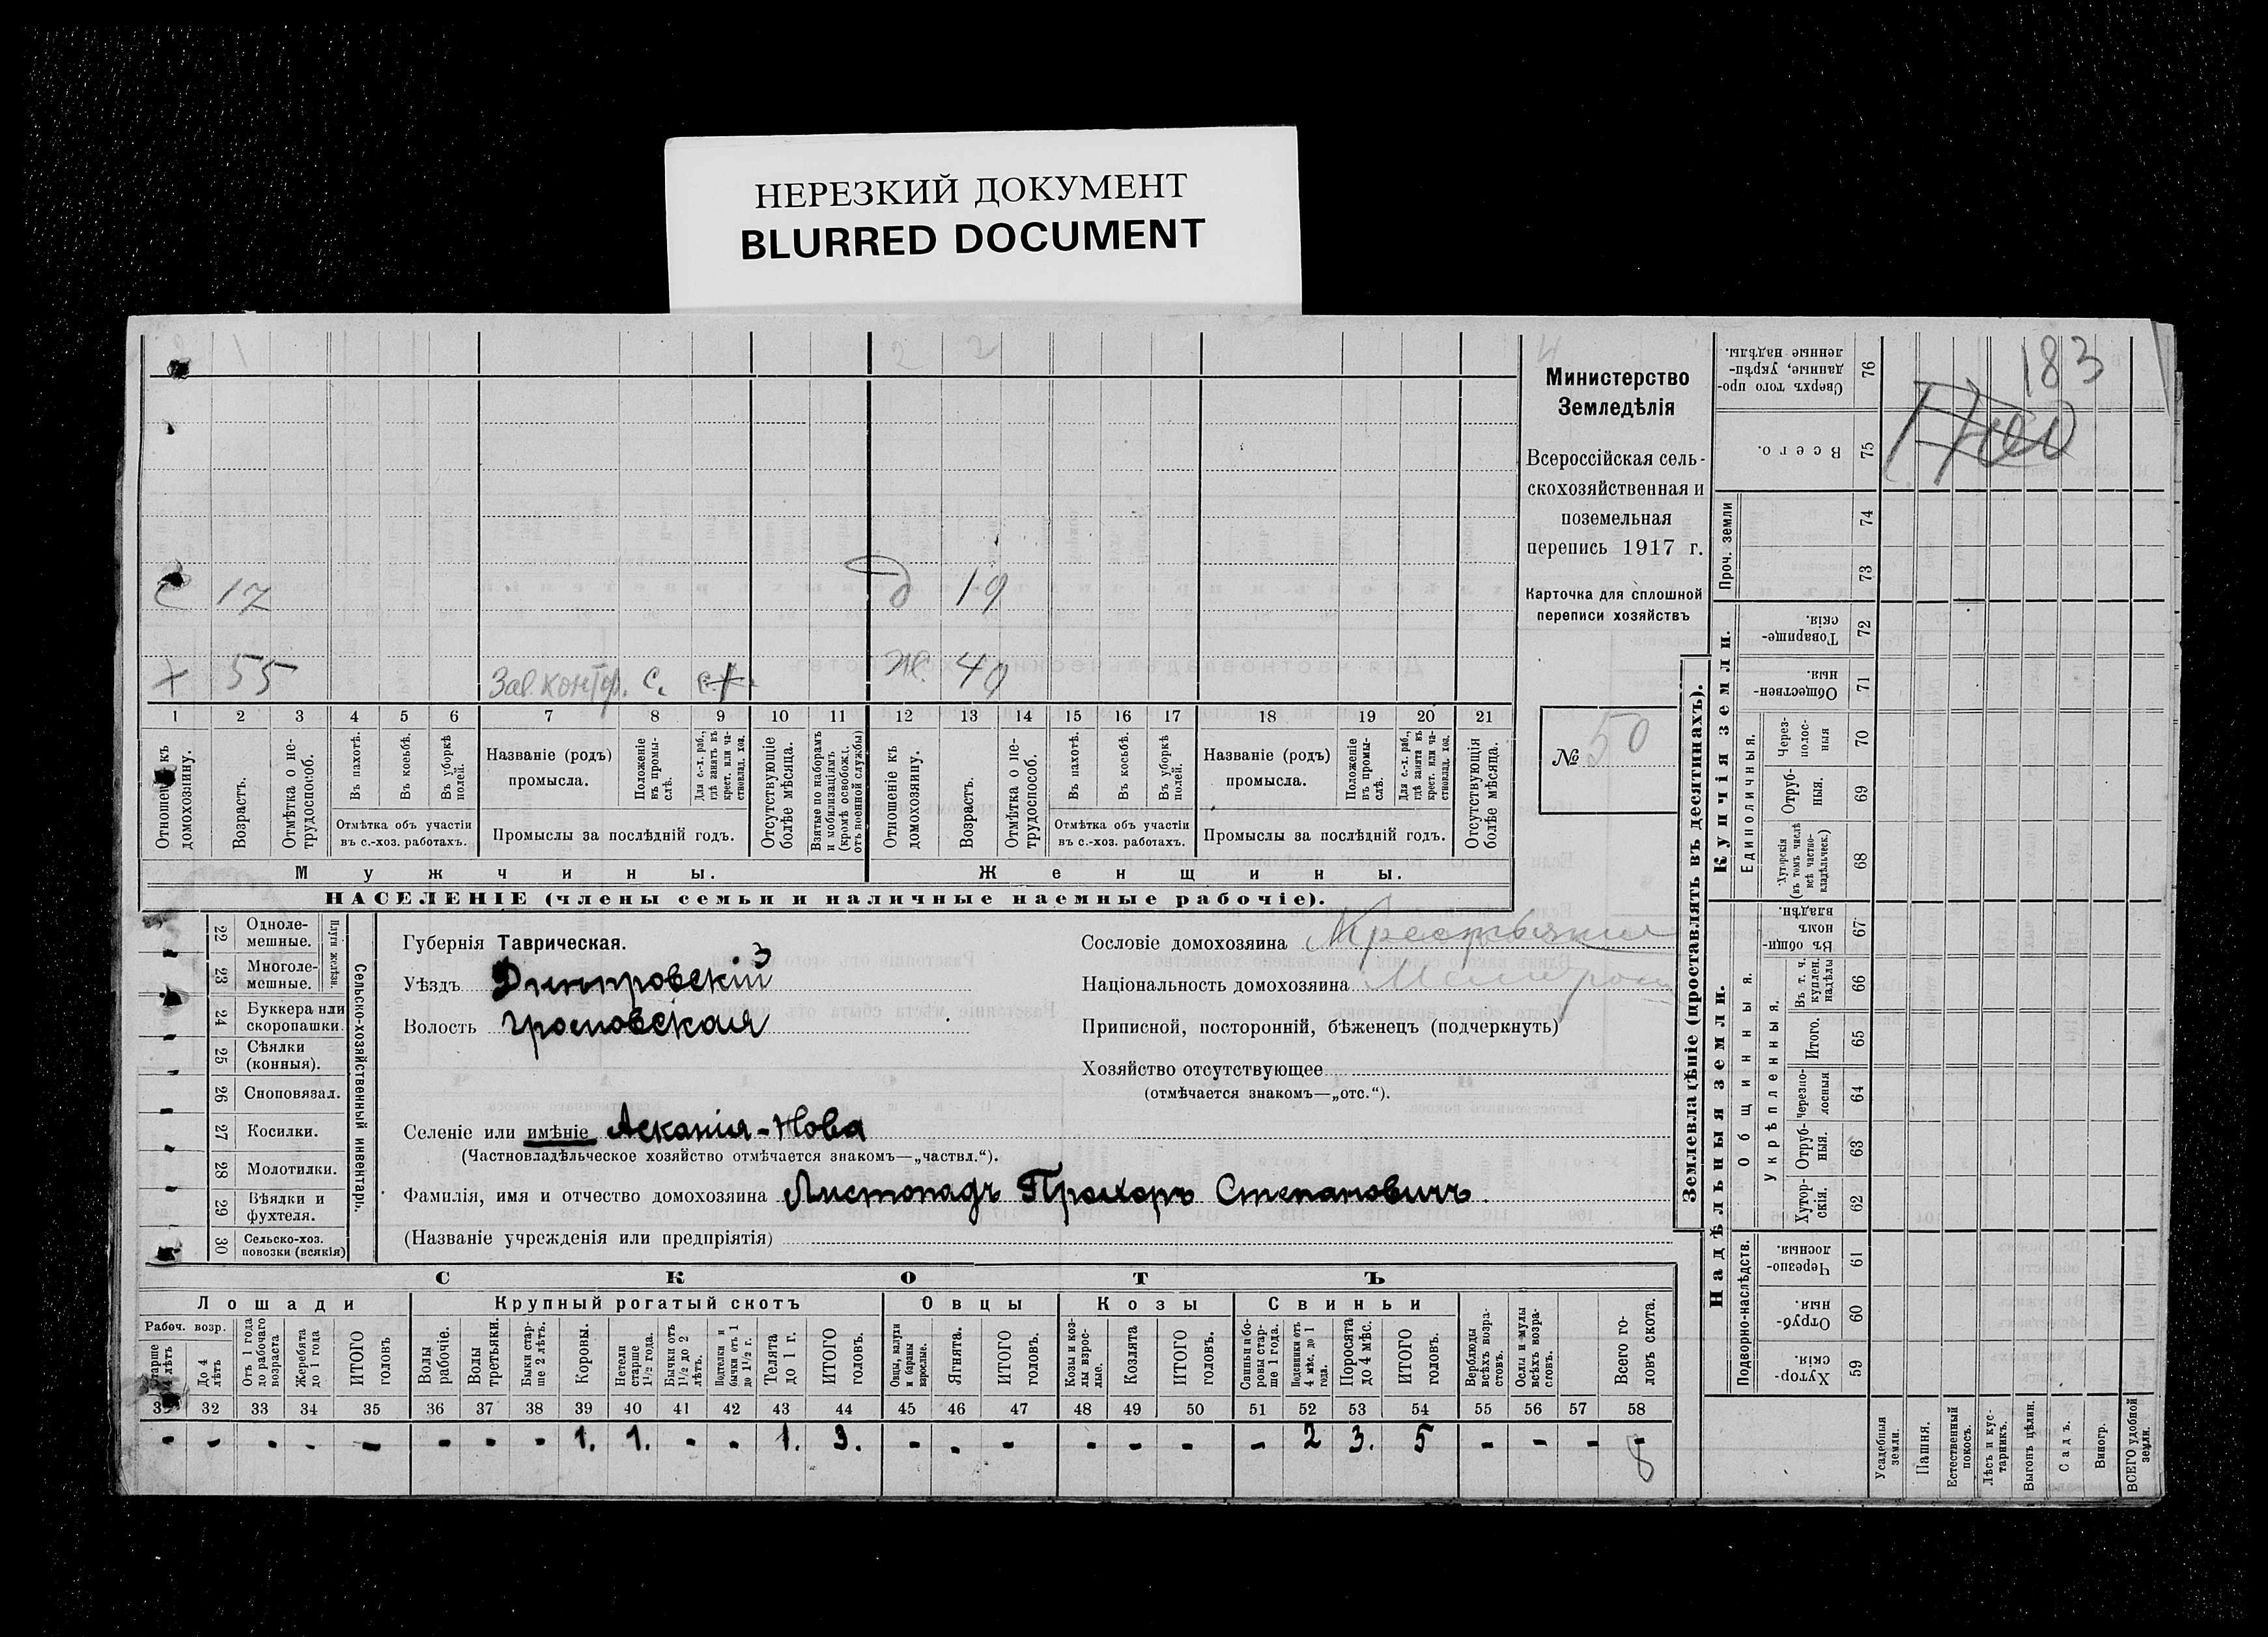 НЕРЕЗКИЙ ДОКУМЕНТ
BLURRED DOCUMENT
183
Министерство
Земледѣлія
Всероссійская сель-
скохозяйственная и
поземельная
перепись 1917 г.
Карточка для сплошной
переписи хозяйствъ
№ 50
С 17 д 19
х 55 Зав. контор. с. ж. 49
1 2 3 4 5 6 7 8 9 10 11 12 13 14 15 16 17 18 19 20 21
Отношеніе къ домохозяину.
Возрастъ.
Отмѣтка о не-трудоспособ.
Въ пахотѣ.
Въ косьбѣ.
Въ уборкѣ полей.
Отмѣтка объ участіи
въ с.-хоз. работахъ.
Названіе (родъ)
промысла.
Положеніе въ промы-слѣ.
Для с.-х. раб., гдѣ занятъ въ крест. или ча-стновлад. хоз.
Промыслы за послѣдній годъ.
Отсутствующіе болѣе мѣсяца.
Взятые по наборамъ и мобилизаціямъ (кромѣ освобожд. отъ военной службы)
Отношеніе къ домохозяину.
Возрастъ.
Отмѣтка о не-трудоспособ.
Въ пахотѣ.
Въ косьбѣ.
Въ уборкѣ полей.
Отмѣтка объ участіи
въ с.-хоз. работахъ.
Названіе (родъ)
промысла.
Положеніе въ промы-слѣ.
Для с.-х. раб., гдѣ занята въ крест. или ча-стновлад. хоз.
Промыслы за послѣдній годъ.
Отсутствующія болѣе мѣсяца.
Мужчины. Женщины.
НАСЕЛЕНІЕ (члены семьи и наличные наемные рабочіе).
Сельско-хозяйственный инвентарь.
Плуги желѣзн.
22 Одноле-мешные.
23 Многоле-мешные.
24 Буккера или скоропашки.
25 Сѣялки (конныя).
26 Сноповязал.
27 Косилки.
28 Молотилки.
29 Вѣялки и фухтеля.
30 Сельско-хоз. повозки (всякія)
Губернія Таврическая.
Уѣздъ Днѣпровскій 3
Волость Громовская
Селеніе или имѣніе Асканія-Нова
(Частновладѣльческое хозяйство отмѣчается знакомъ—„частвл.“).
Фамилія, имя и отчество домохозяина Листопадъ Прохоръ Степановичъ.
(Названіе учрежденія или предпріятія)
Сословіе домохозяина Крестьянин
Національность домохозяина
Приписной, посторонній, бѣженецъ (подчеркнуть)
Хозяйство отсутствующее
(отмѣчается знакомъ—„отс.“).
СКОТЪ
Лошади Крупный рогатый скотъ Овцы Козы Свиньи
Рабоч. возр.
Старше 4 лѣтъ
До 4 лѣтъ
Отъ 1 года до рабочаго возраста
Жеребята до 1 года
ИТОГО головъ
Волы рабочіе.
Волы третьяки.
Быки стар-ше 2 лѣтъ.
Коровы.
Нетели старше 1½ года.
Бычки отъ 1½ до 2 лѣтъ.
Подтелки и бычки отъ 1 до 1½ г.
Телята до 1 г.
ИТОГО головъ.
Овцы, валухи и бараны взрослые.
Ягнята.
ИТОГО головъ.
Козы и коз-лы взрос-лые.
Козлята
ИТОГО головъ.
Свиньи и бо-ровы стар-ше 1 года.
Подсвинки отъ 4 мѣс. до 1 года.
Поросята до 4 мѣс.
ИТОГО головъ.
Верблюды всѣхъ возра-стовъ.
Ослы и мулы всѣхъ возра-стовъ.
Всего го-ловъ скота.
31 32 33 34 35 36 37 38 39 40 41 42 43 44 45 46 47 48 49 50 51 52 53 54 55 56 57 58
- - - - - - - - 1. 1. - - 1. 3. - - - - - - - 2 3. 5 - - - 8
Землевладѣніе (проставлять въ десятинахъ).
Купчія земли.
Надѣльныя земли.
Сверхъ того про-данные, укрѣп-ленные надѣлы. 76
Всего. 75
Проч. земли 74 73
Товарище-скія. 72
Обществен-ныя. 71
Единоличныя.
Через-полос-ныя 70
Отруб-ныя. 69
Хуторскія (въ томъ числѣ всѣ частно-владѣльческ.) 68
Общинныя.
Въ общин-номъ владѣн. 67
Укрѣпленныя.
Въ т. ч. куплен. надѣлы 66
Итого. 65
Черезпо-лосныя 64
Отруб-ныя. 63
Хутор-скія. 62
Подворно-наслѣдств.
Черезпо-лосныя. 61
Отруб-ныя. 60
Хутор-скія. 59
Усадебныя земли.
Пашня.
Естественный покосъ.
Лѣсъ и кус-тарникъ.
Выгонъ цѣлин.
Садъ.
Виногр.
ВСЕГО удобной земли.